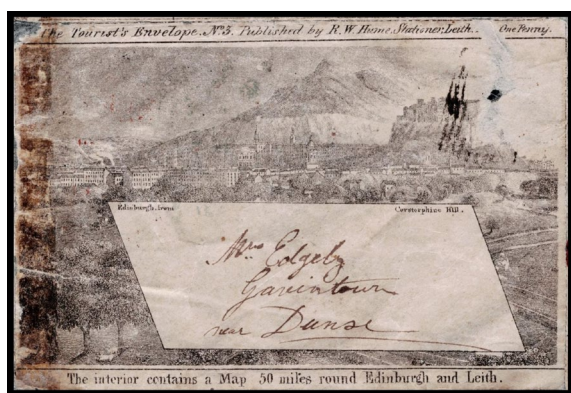 The Tourist's Envelope. No. 5. Published by R. W. Hume. Stationer. Leith. One Penny.
Edinburgh. from Corstorphine Hill.
Mrs Edgeby
Gavintown
near Dunse
The interior contains a Map 50 miles round Edinburgh and Leith.